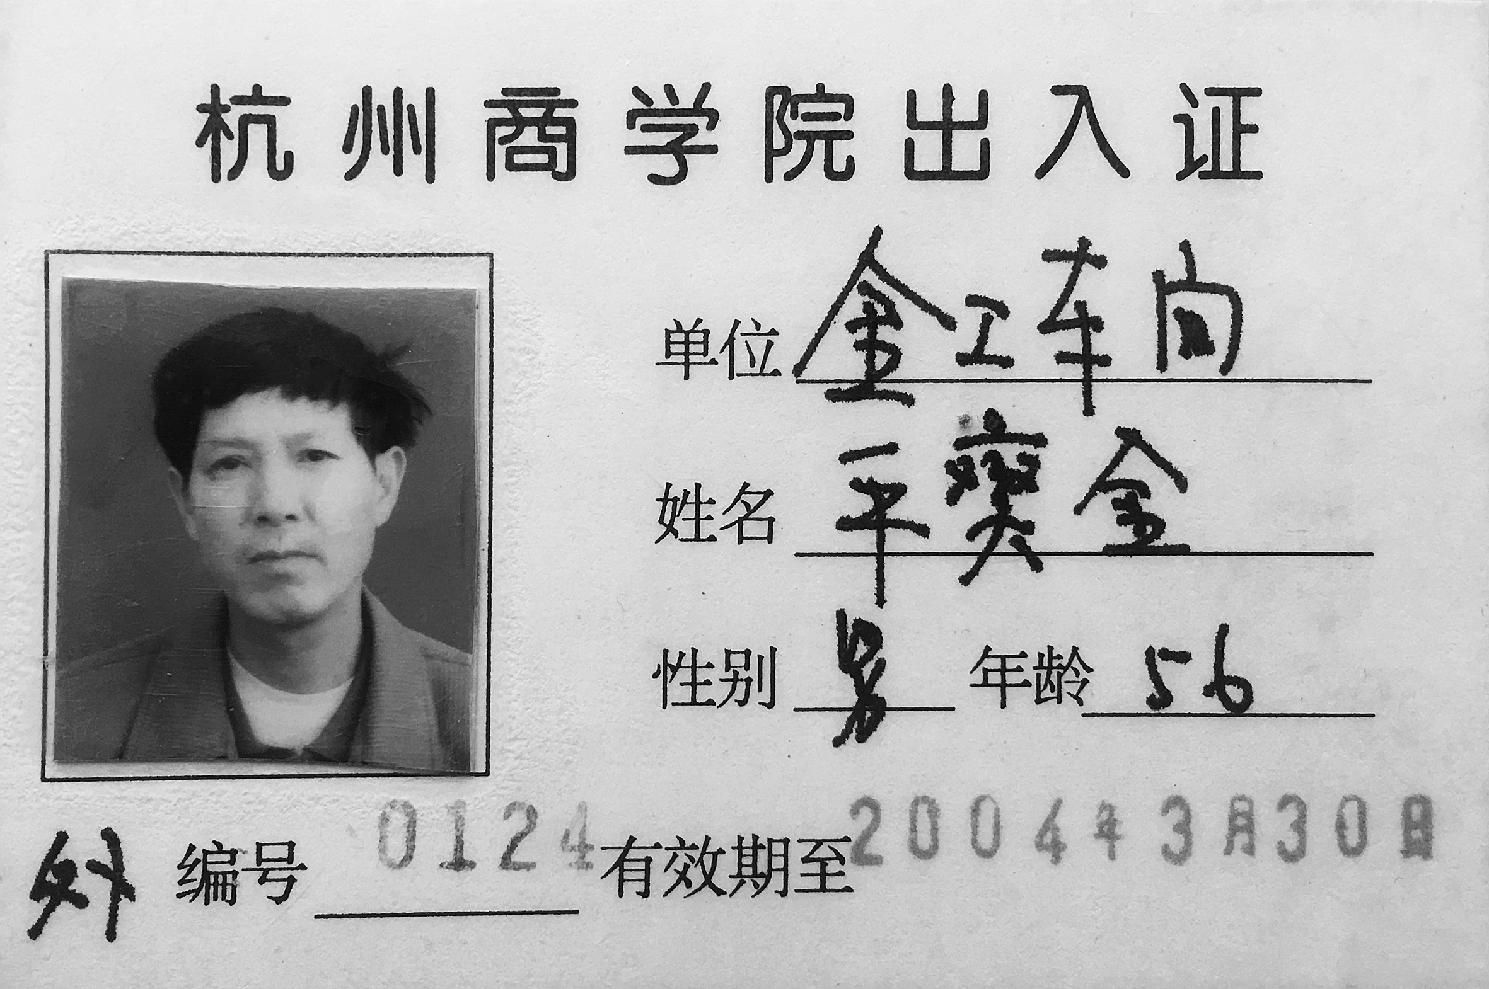 杭州商学院出入证
单位 金工车间
姓名 平爕金
性别 男 年龄 56
外 编号 0124 有效期至 2004年3月30日